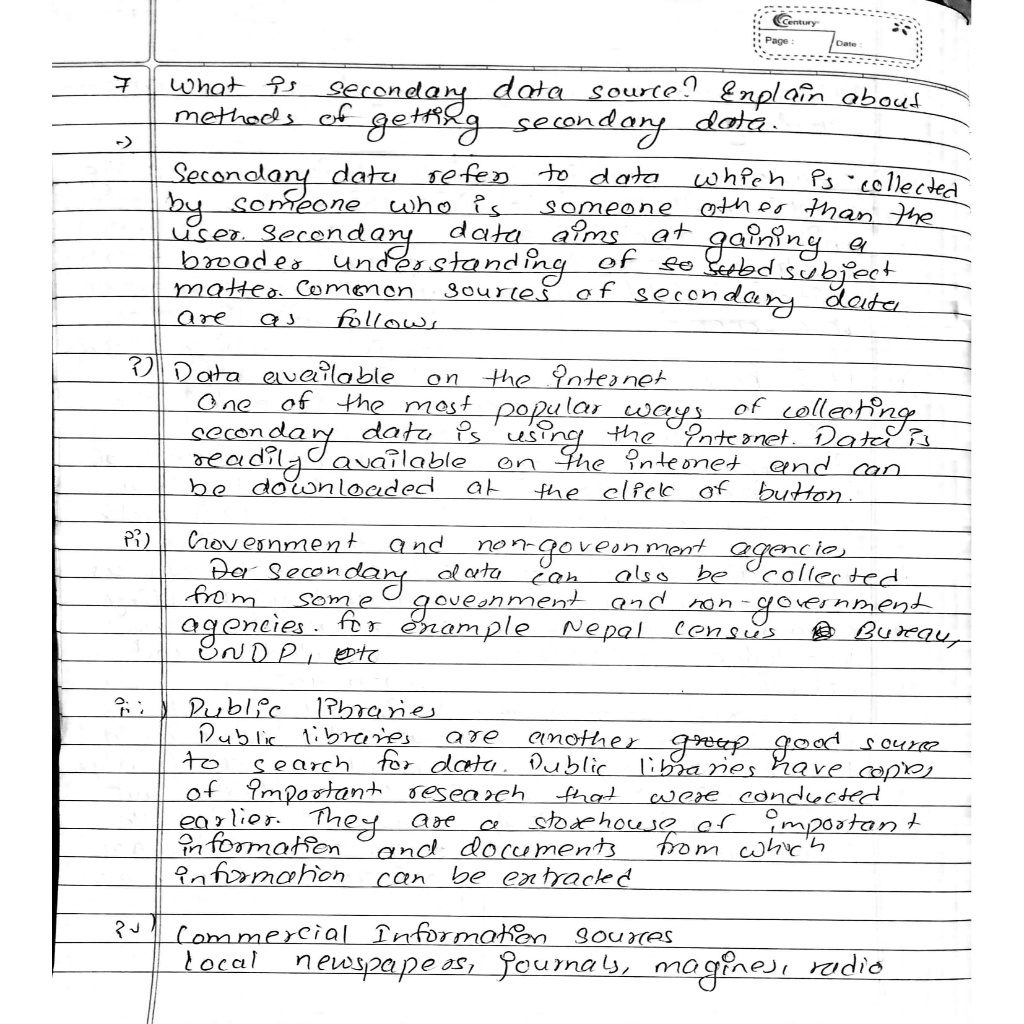 Century
Page :
Date :
7 What is secondary data source? Explain about
methods of getting secondary data.
->
Secondary data refers to data which is collected
by someone who is someone other than the
user. Secondary data aims at gaining a
broader understanding of so subd subject
matter. Common sources of secondary data
are as follows
i) Data available on the internet
One of the most popular ways of collecting
secondary data is using the internet. Data is
readily available on the internet and can
be downloaded at the click of button.
ii) Government and non-government agencies
Da Secondary data can also be collected
from some government and non-government
agencies. for example Nepal Census Bureau,
UNDP, etc
iii) Public libraries
Public libraries are another group good source
to search for data. Public libraries have copies
of important research that were conducted
earlier. They are a storehouse of important
information and documents from which
information can be extracted
iv) Commercial Information sources
Local newspapers, journals, magines, radio